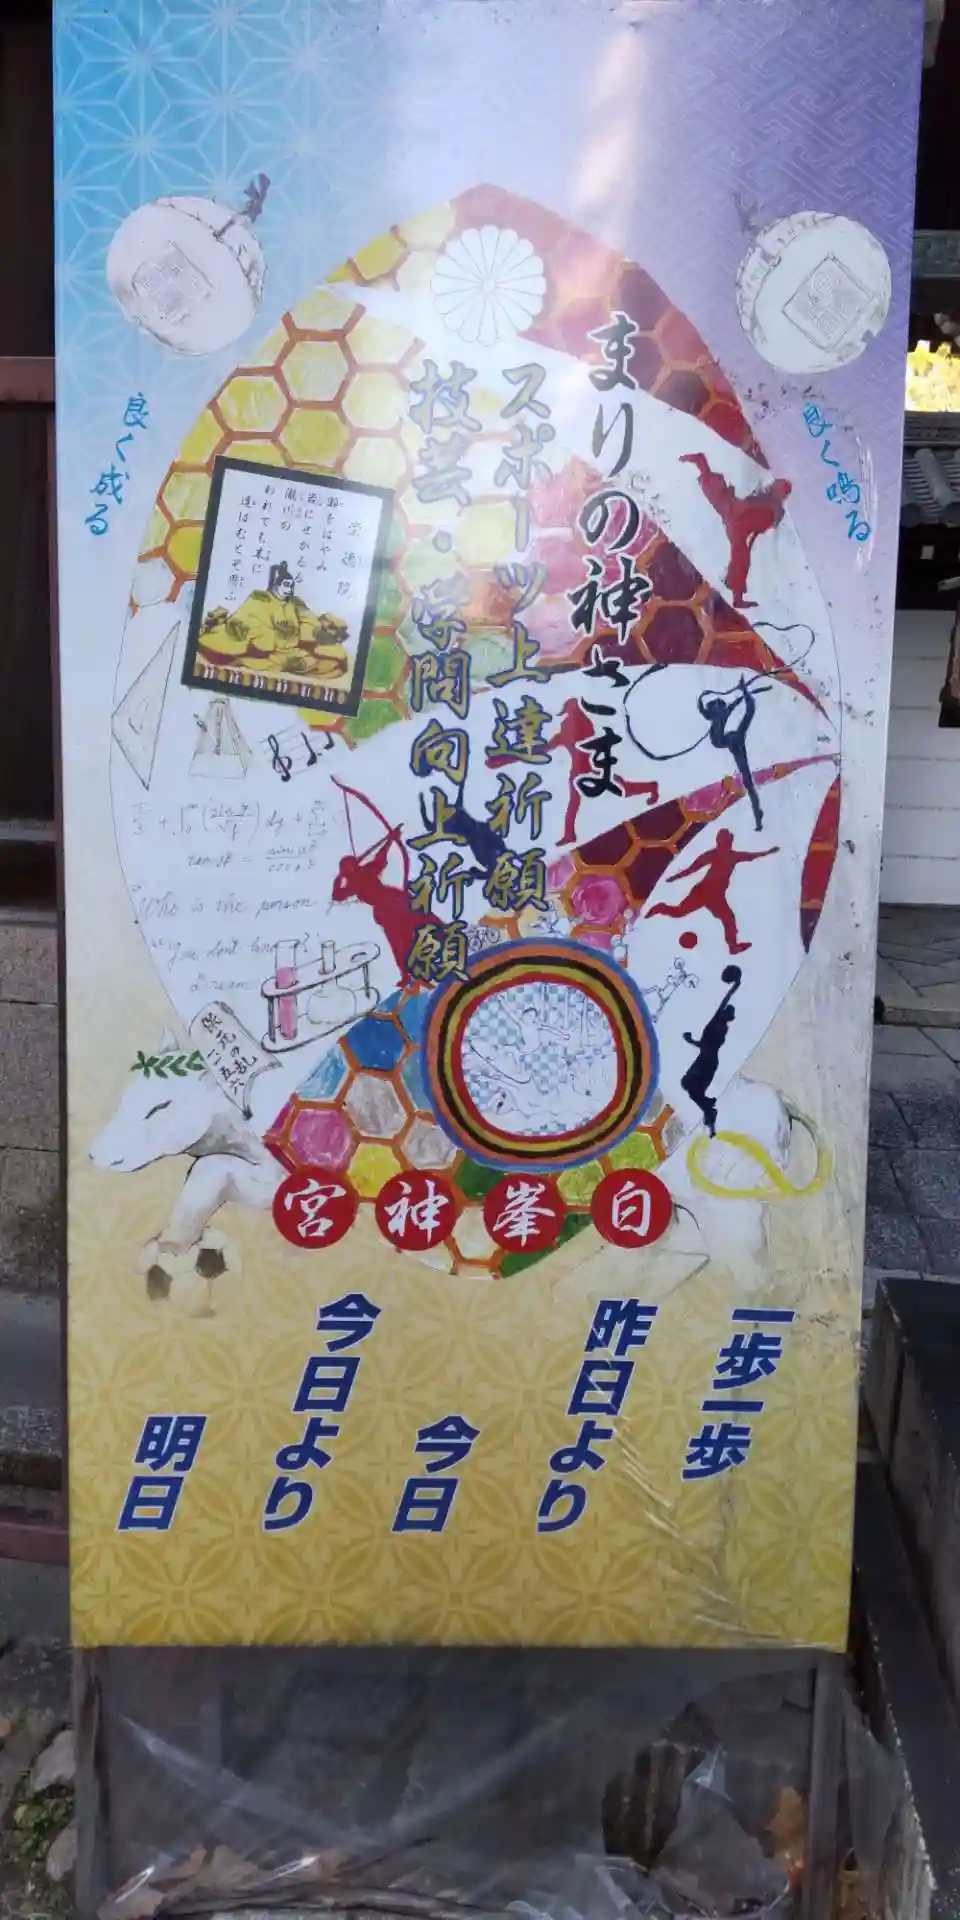 まりの神さま
スポーツ上達祈願
技芸・学問向上祈願
良く鳴る
良く成る
崇徳院
瀬をはやみ
岩にせかるる
瀧川の
われても末に
逢はむとぞ思ふ
Who is the person
"You don't know?"
Dream
保元の乱
一一五六
白峯神宮
一歩一歩
昨日より
今日
今日より
明日